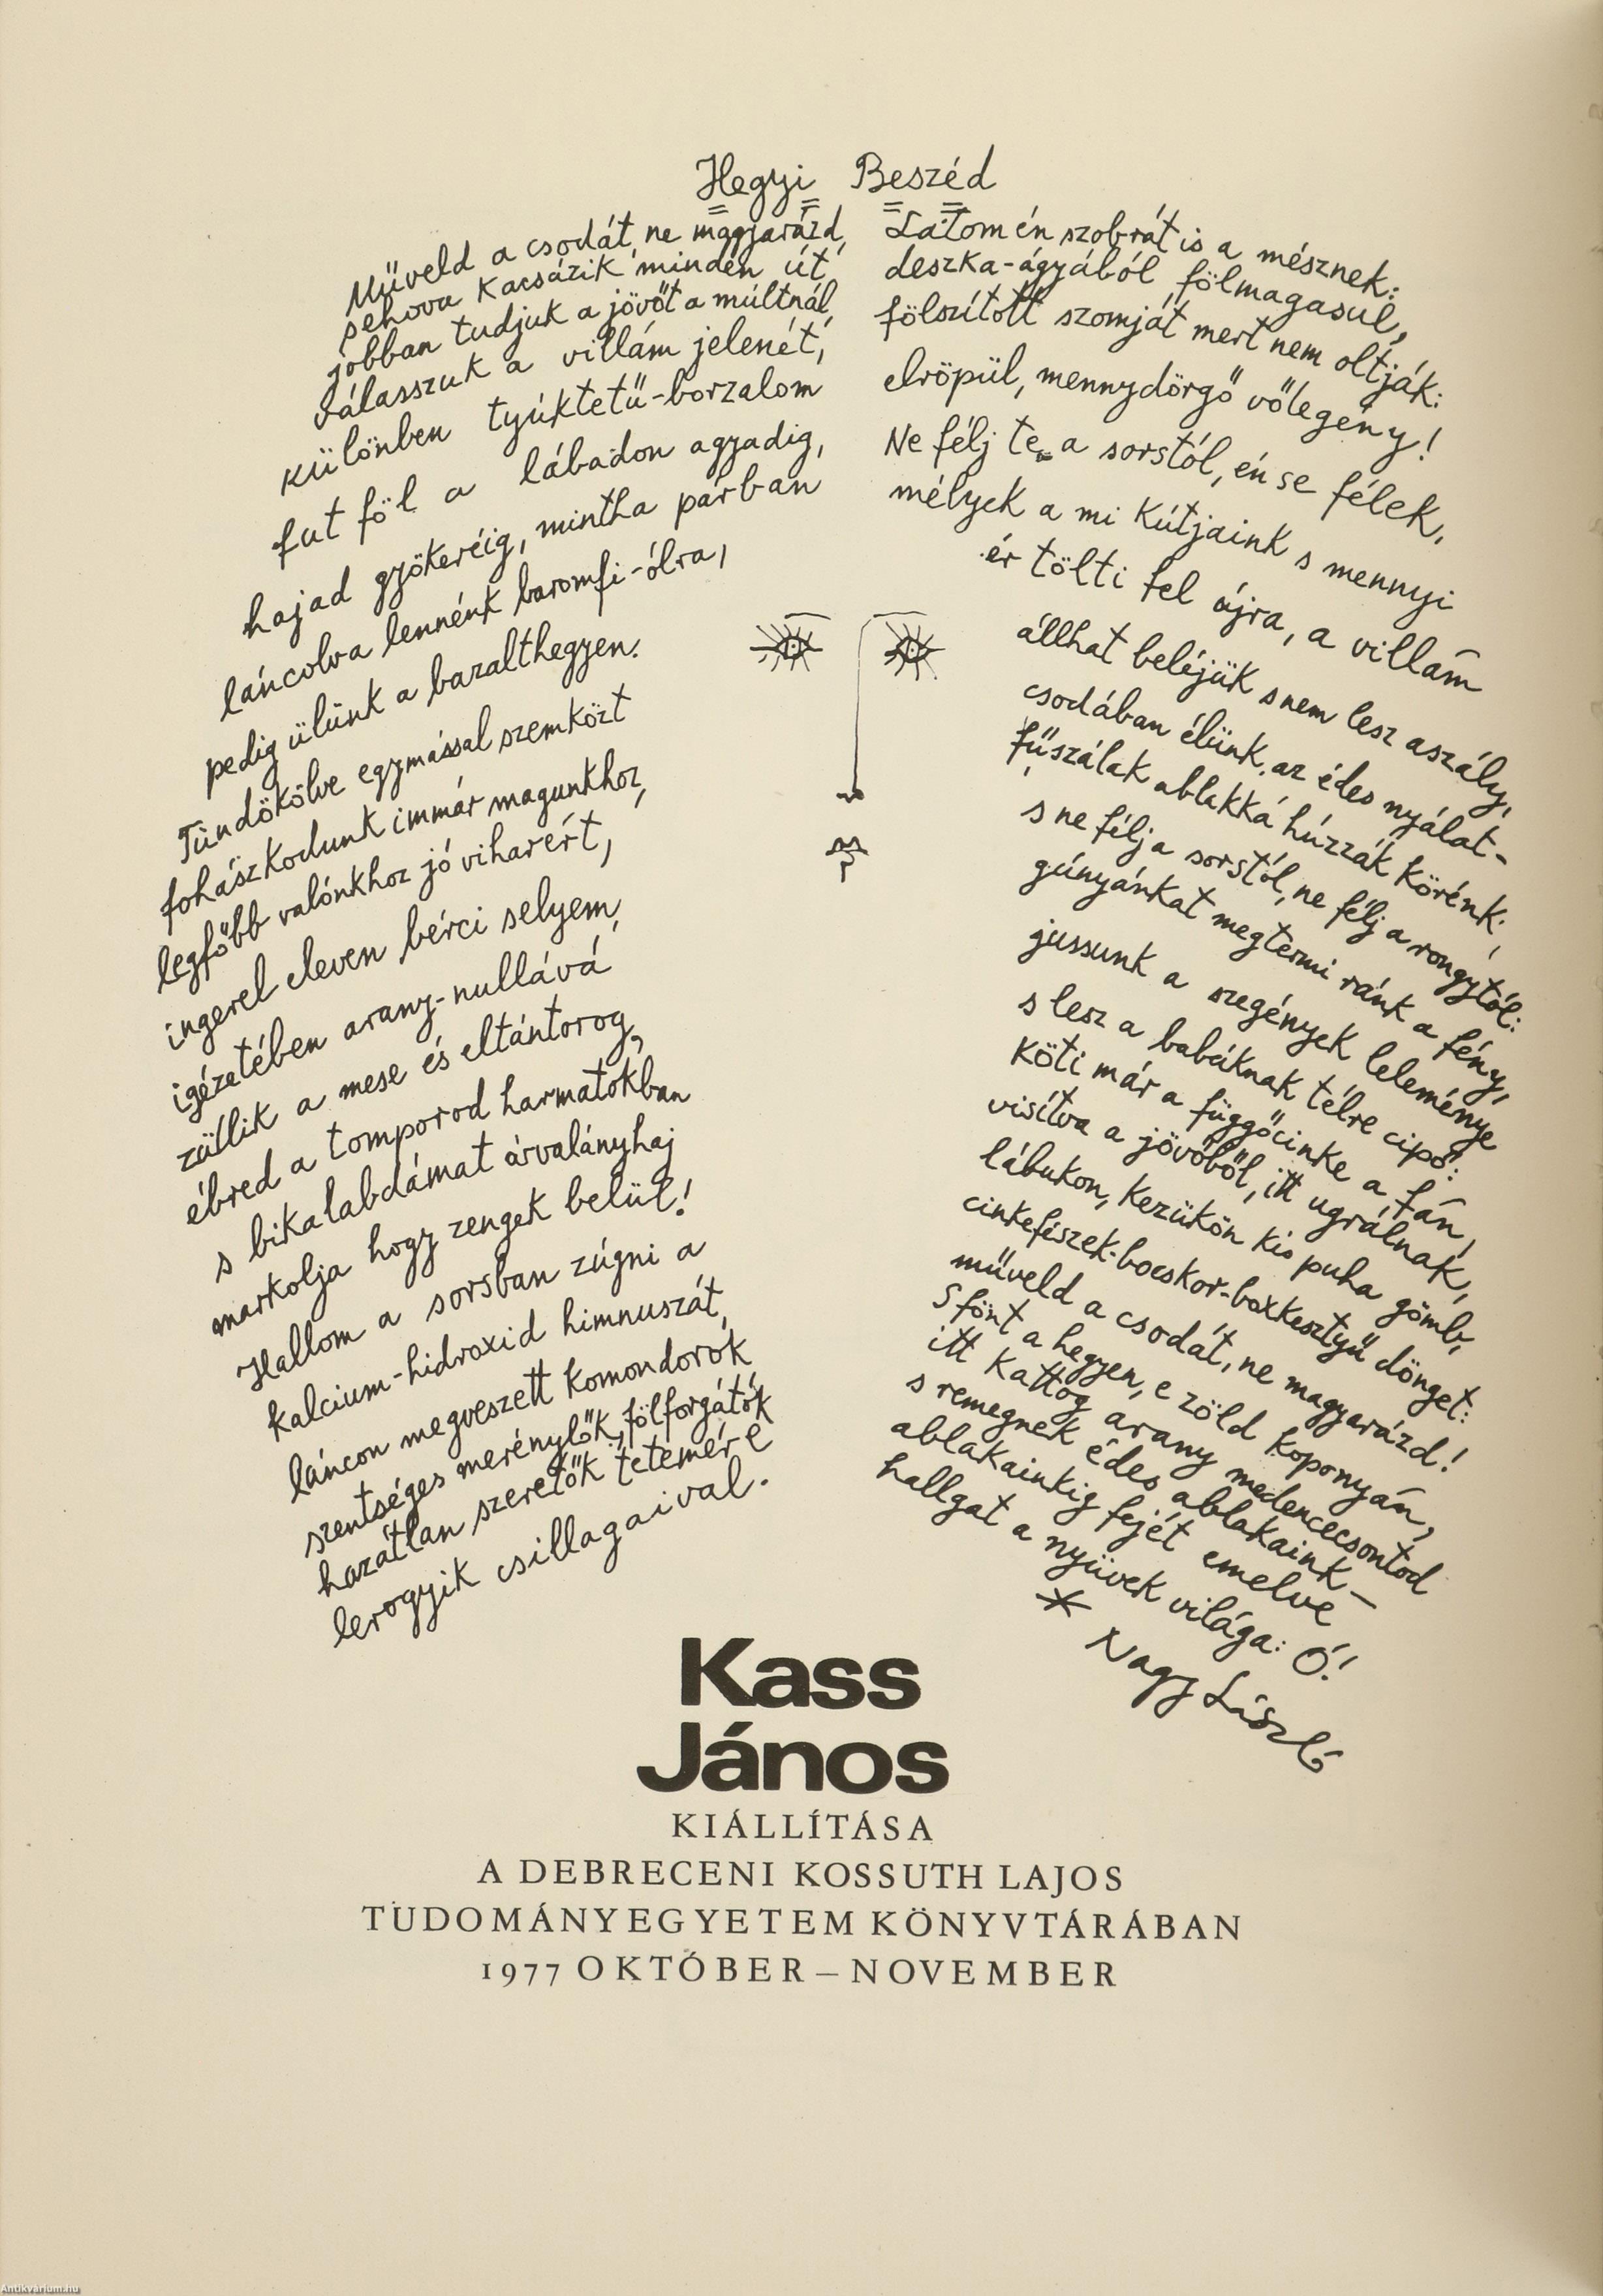 Hegyi Beszéd
Műveld a csodát, ne magyarázd,
sehova kacsázik minden út,
jobban tudjuk a jövőt a múltnál,
válasszuk a villám jelenét,
különben tyúktetű-borzalom
fut föl a lábadon agyadig,
hajad gyökeréig, mintha párban
láncolva lennénk baromfi-ólra,
pedig ülünk a bazalthegyen.
Tündökölve egymással szemközt
fohászkodunk immár magunkhoz,
legfőbb valónkhoz jó viharért,
ingerel eleven bérci selyem,
igézetében arany-nullává
züllik a mese és eltántorog,
ébred a tomporod harmatokban
s bikalabdámat árvalányhaj
markolja hogy zengek belül!
Hallom a sorsban zúgni a
kalcium-hidroxid himnuszát,
láncon megveszett komondorok
szentséges merénylők, fölforgatók
hazátlan szeretők tetemére
lerogyik csillagaival.
Látom én szobrát is a mésznek:
deszka-ágyából fölmagasul,
fölszított szomját mert nem oltják:
elröpül, mennydörgő vőlegény!
Ne félj te a sorstól, én se félek,
mélyek a mi kútjaink s mennyi
ér tölti fel újra, a villám
állhat beléjük s nem lesz aszály,
csodában élünk, az édes nyálat-
fűszálak ablakká húzzák körénk,
s ne félj a sorstól, ne félj a rongytól:
gúnyánkat megtermi ránk a fény,
jussunk a szegények leleménye
s lesz a babáknak télre cipő:
köti már a függőcinke a fán,
visítva a jövőből, itt ugrálnak,
lábukon, kezükön kis puha gömb,
cinkefészek-bocskor-boxkesztyű dönget:
műveld a csodát, ne magyarázd!
S fönt a hegyen, e zöld koponyán,
itt kattog arany medencecsontod
s remegnek édes ablakaink –
ablakainkig fejét emelve
hallgat a nyüvek világa: Ó!
* Nagy László
Kass
János
KIÁLLÍTÁSA
A DEBRECENI KOSSUTH LAJOS
TUDOMÁNYEGYETEM KÖNYVTÁRÁBAN
1977 OKTÓBER – NOVEMBER
Antikvárium.hu